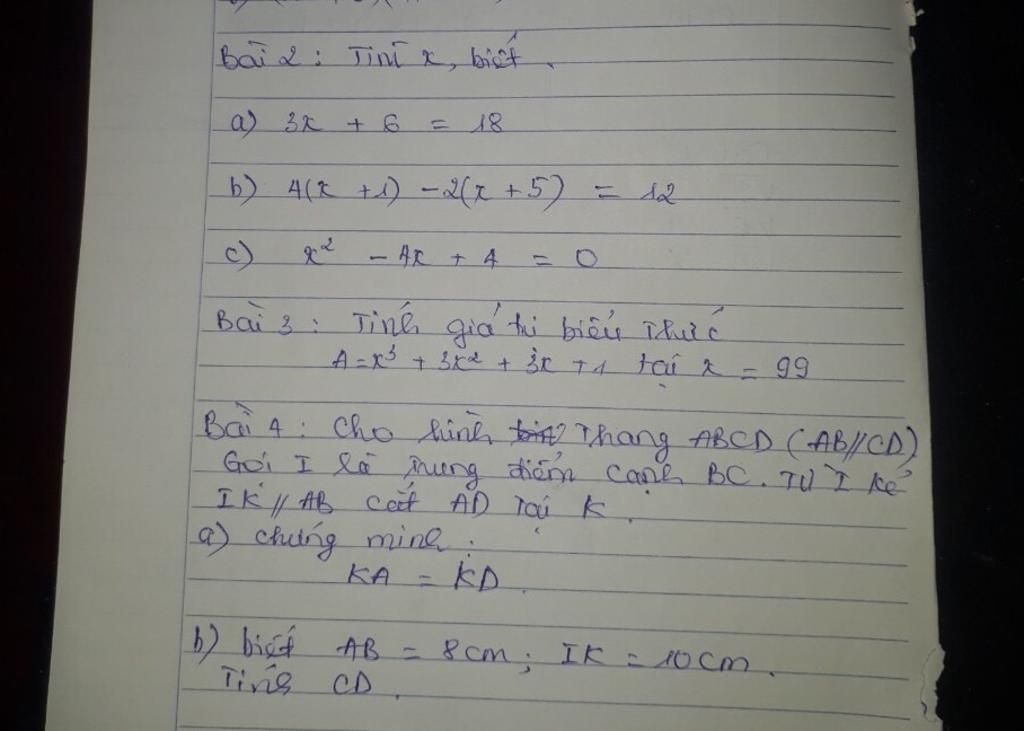 Bài 2 : Tìm x, biết.
a) 3x + 6 = 18
b) 4(x + 1) - 2(x + 5) = 12
c) x² - 4x + 4 = 0
Bài 3 : Tính giá trị biểu thức
A = x³ + 3x² + 3x + 1 tại x = 99
Bài 4 : Cho hình thang ABCD (AB//CD)
Gọi I là trung điểm cạnh BC. Từ I kẻ
IK // AB cắt AD tại K.
a) chứng minh :
KA = KD.
b) biết AB = 8cm ; IK = 10cm.
Tính CD.